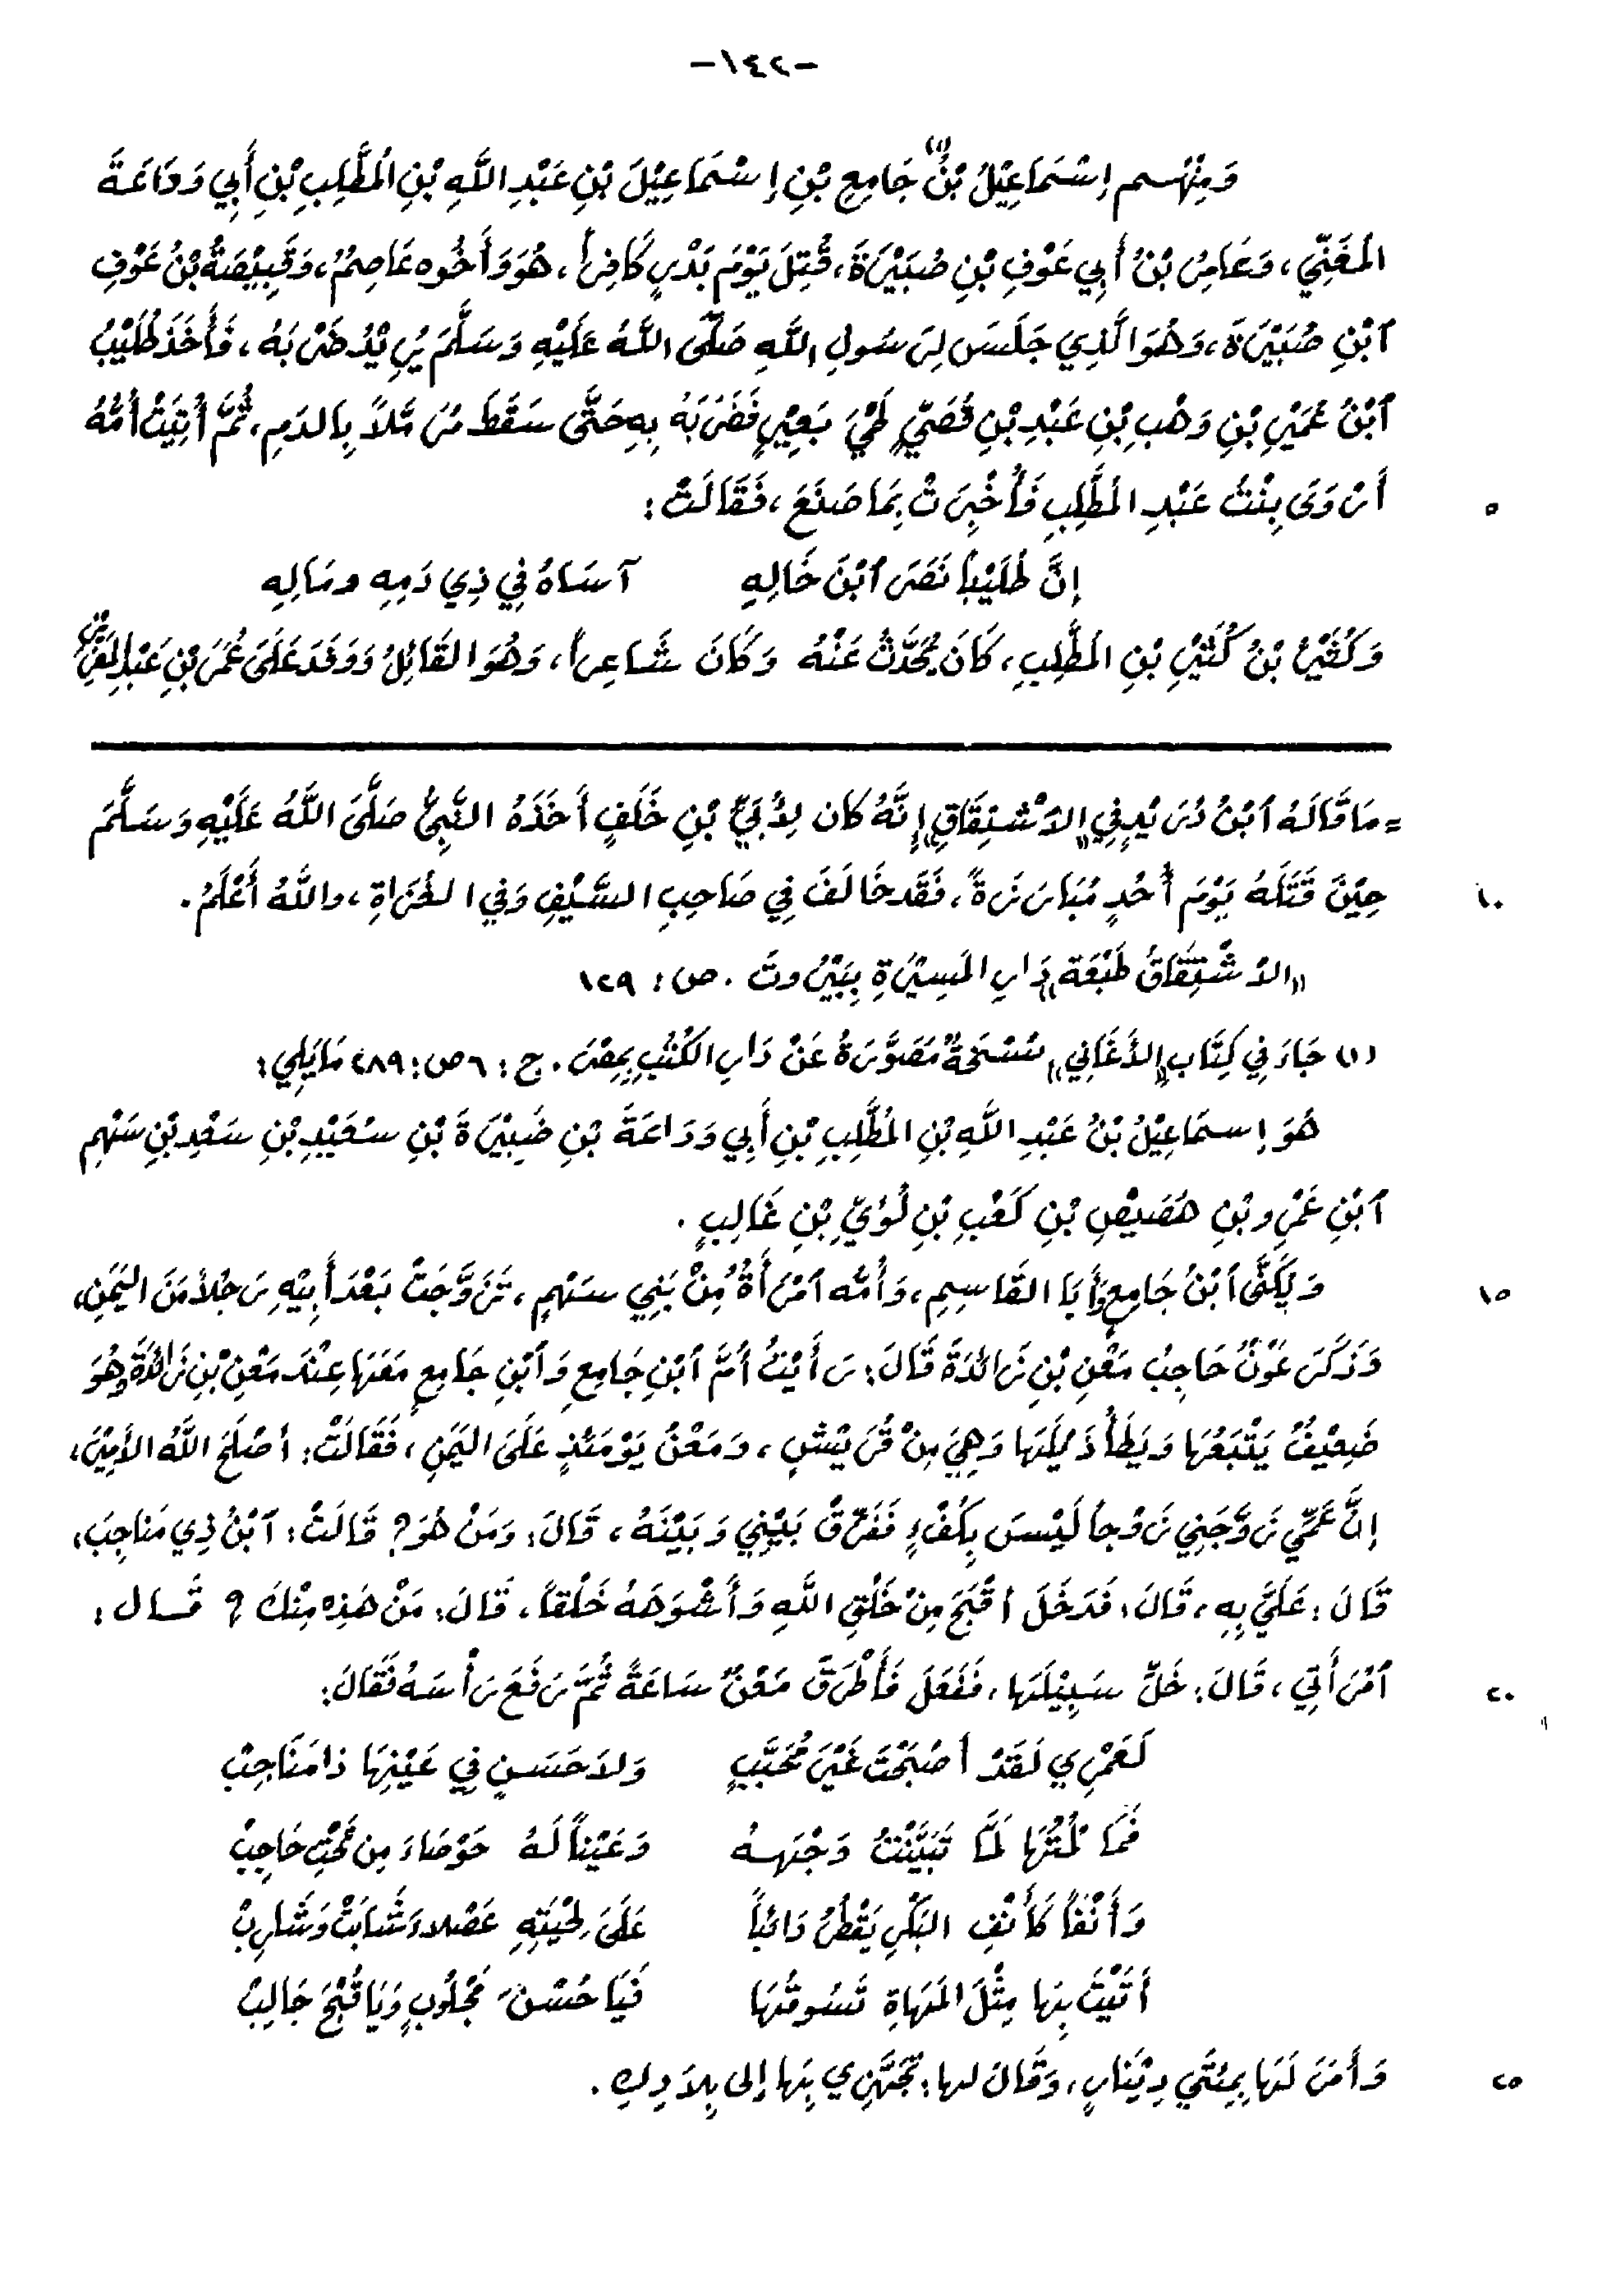 -١٤٢-
وَمِنْهُم إِسْمَاعِيْلُ بْنُ (١) جَامِعِ بْنِ إِسْمَاعِيْلَ بْنِ عَبْدِ اللَّهِ بْنِ المُطَّلِبِ بْنِ أَبِي وَدَاعَةَ
المُغَنِّي، وَعَامِرُ بْنُ أَبِي عَوْفِ بْنِ ضُبَيْرَةَ، قُتِلَ يَوْمَ بَدْرٍ كَافِراً، هُوَ وَأَخُوه عَاصِمُ، وَقَبِيْصَةُ بْنُ عَوْفِ
ٱبْنِ ضُبَيْرَةَ، وَهُوَ الَّذِي جَلَسَ لِرَسُولِ اللَّهِ صَلَّى اللَّهُ عَلَيْهِ وَسَلَّمَ يُرِيْدُ ضَرْبَهُ، فَأَخَذَ طُلَيْبُ
ٱبْنُ عُمَيْرِ بْنِ وَهْبِ بْنِ عَبْدِ بْنِ قُصَيٍّ لَحْيَ بَعِيْرٍ فَضَرَبَهُ بِهِ حَتَّى سَقَطَ مُزَمَّلاً بِالدَمِ، ثُمَّ أُتِيَتْ أُمُّهُ
أَرْوَى بِنْتُ عَبْدِ المُطَّلِبِ فَأُخْبِرَتْ بِمَا صَنَعَ، فَقَالَتْ: ٥
إِنَّ طُلَيْباً نَصَرَ ٱبْنَ خَالِهِ آسَاهُ فِي ذِي دَمِهِ ومَالِهِ
وَكَثِيْرُ بْنُ كَثِيْرِ بْنِ المُطَّلِبِ، كَانَ يُحَدَّثُ عَنْهُ وَكَانَ شَاعِراً، وَهُوَ القَائِلُ وَوَفَدَ عَلَى عُمَرَ بْنِ عَبْدِ العَزِيْزِ
= مَا قَالَهُ ٱبْنُ دُرَيْدٍ فِي «الاشْتِقَاقِ» إِنَّهُ كان لِأُبَيِّ بْنِ خَلَفٍ أَخَذَهُ النَّبِيُّ صَلَّى اللَّهُ عَلَيْهِ وَسَلَّمَ
حِيْنَ قَتَلَهُ يَوْمَ أُحُدٍ مُبَارَزَةً، فَقَد خَالَفَ فِي صَاحِبِ السَّيْفِ وَفِي الغُزَاةِ، واللَّهُ أَعْلَمُ. ١٠
«الاشْتِقَاقُ طَبْعَة» دَارِ المَسِيْرَةِ بِبَيْرُوتَ. ص: ١٢٩
(١) جَاءَ فِي كِتَاب «الأَغَانِي» نُسْخَةٌ مُصَوَّرَةٌ عَنْ دَارِ الكُتُبِ بِمِصْرَ. ج: ٦ ص: ٢٨٩ مَا يَلِي:
هُوَ إِسمَاعِيْلُ بْنُ عَبْدِ اللَّهِ بْنِ المُطَّلِبِ بْنِ أَبِي وَدَاعَةَ بْنِ ضُبَيْرَةَ بْنِ سُعَيْدِ بْنِ سَعْدِ بْنِ سَهْمِ
ٱبْنِ عَمْرِو بْنِ هُصَيْصِ بْنِ كَعْبِ بْنِ لُؤَيِّ بْنِ غَالِبٍ.
وَيُكَنَّى ٱبْنُ جَامِعٍ أَبَا القَاسِمِ، وَأُمُّه ٱمْرَأَةٌ مِنْ بَنِي سَهْمٍ، تَزَوَّجَتْ بَعْدَ أَبِيْهِ رَجُلاً مَنَ اليَمَنِ، ١٥
وَذَكَرَ عَوْنُ حَاجِبُ مَعْنِ بْنِ زَائدَةَ قَالَ: رَأَيْتُ أُمَّ ٱبْنِ جَامِعِ وَٱبْنِ جَامِعٍ مَعَهَا عِنْدَ مَعْنِ بْنِ زَائدَةَ وَهُوَ
ضَعِيْفٌ يَتْبَعُهَا وَيَطَأُ ذَيْلَهَا وَهِيَ مِنْ قُرَيْشٍ، وَمَعْنُ يَوْمَئذٍ عَلَى اليَمَنِ، فَقَالَتْ: أَصْلَحَ اللَّهُ الأَمِيْرَ،
إِنَّ عَمِّي زَوَّجَنِي زَوْجاً لَيْسَ بِكُفْءٍ فَفَرِّقْ بَيْنِي وَبَيْنَهُ، قَالَ: وَمَنْ هُوَ؟ قَالَتْ: ٱبْنُ ذِي مَناجِبَ،
قَالَ: عَلَيَّ بِهِ، قَالَ: فَدَخَلَ أَقْبَحَ مِنْ خَلْقِ اللَّهِ وَأَشْوَهَهُ خَلْقاً، قَالَ: مَنْ هَذِه مِنْكَ؟ قَال:
ٱمْرَأَتِي، قَالَ: خَلِّ سَبِيْلَهَا، فَفَعَلَ فَأَطْرَقَ مَعْنٌ سَاعَةً ثُمَّ رَفَعَ رَأْسَهُ فَقَالَ: ٢٠
لَعَمْرِي لَقَدْ أَصْبَحْتَ غَيْرَ مُحَبَّبٍ وَلاَ حَسَنٍ فِي عَيْنِهَا ذا مَنَاجِبْ
فَمَا لُمْتُهَا لَمَّا تَبَيَّنْتُ وَجْهَهُ وَعَيْناً لَهُ حَوْصَاءَ مِن تَحْتِ حَاجِبْ
وَأَنْفاً كَأَنْفِ البَكْرِ يَقْطُرُ دَائباً عَلَى لِحْيَتِهِ عَصْلاءَ شَابَتْ وَشَارِبْ
أَتَيْتَ بِهَا مِثْلَ المَهَاةِ تَسُوقُهَا فَيَا حُسْنَ مَجْلُوبٍ وَيَا قُبْحَ جَالِبْ
وَأَمَرَ لَهَا بِمِئَتَيْ دِيْنَارٍ، وَقَالَ لها: تَجَهَّزِي بِهَا إلى بِلاَدِكِ. ٢٥